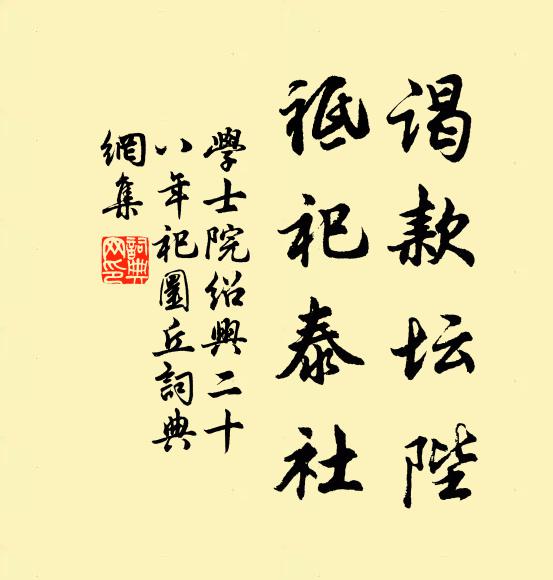 谒款坛陛
祗祀泰社
學士院绍興二十
八年祀圜丘詞典
網集
詞典
网印